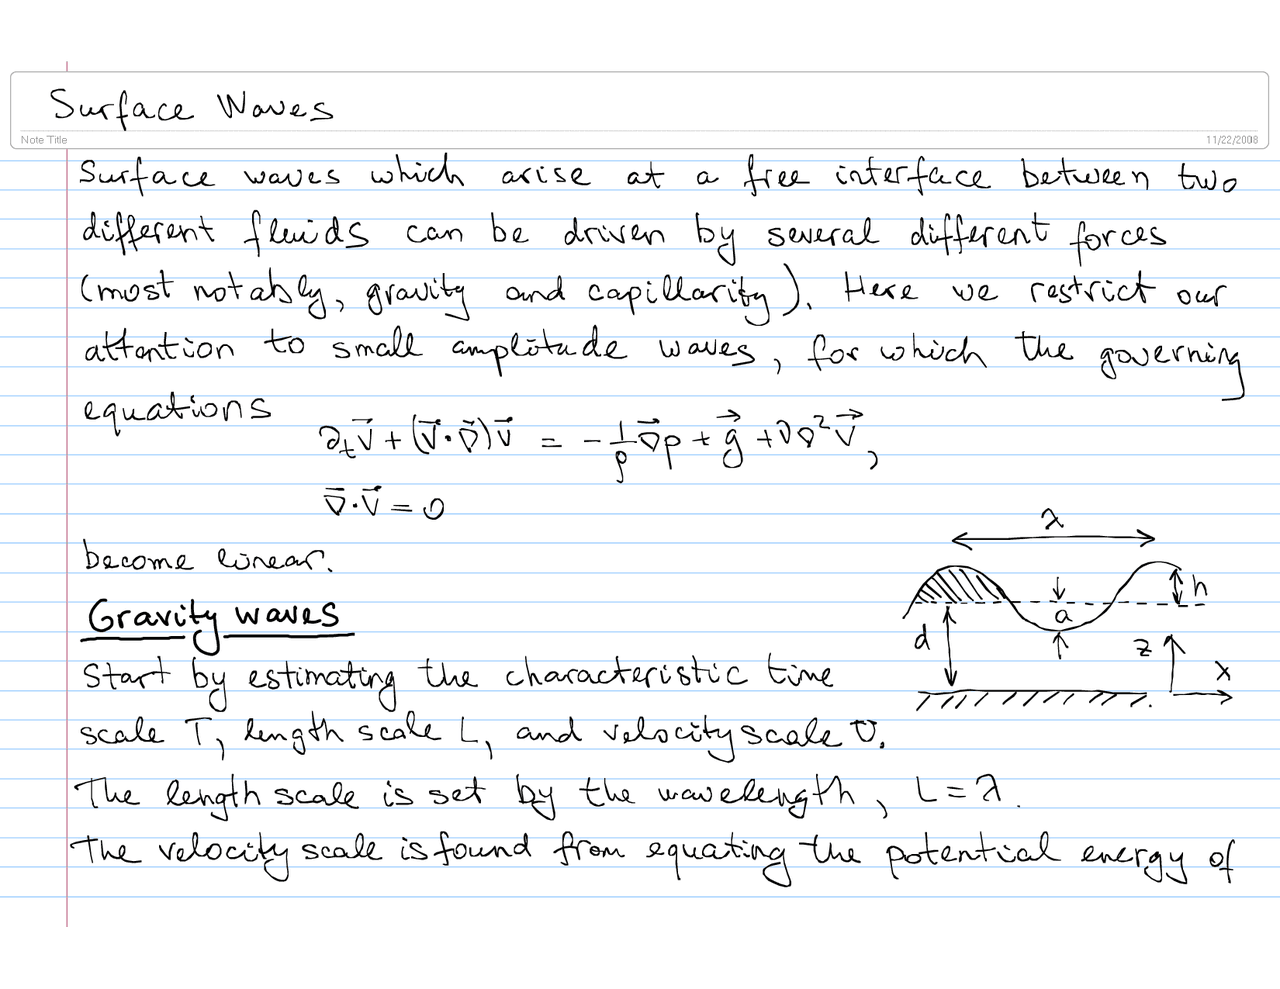 Surface Waves
Note Title
11/22/2008
Surface waves which arise at a free interface between two
different fluids can be driven by several different forces
(most notably, gravity and capillarity). Here we restrict our
attention to small amplitude waves, for which the governing
equations
∂ₜv⃗ + (v⃗·∇⃗)v⃗ = -1/ρ ∇⃗p + g⃗ + ν∇²v⃗,
∇⃗·v⃗ = 0
become linear.
λ
h
a
d
z
x
Gravity waves
Start by estimating the characteristic time
scale T, length scale L, and velocity scale U.
The length scale is set by the wavelength, L = λ.
The velocity scale is found from equating the potential energy of